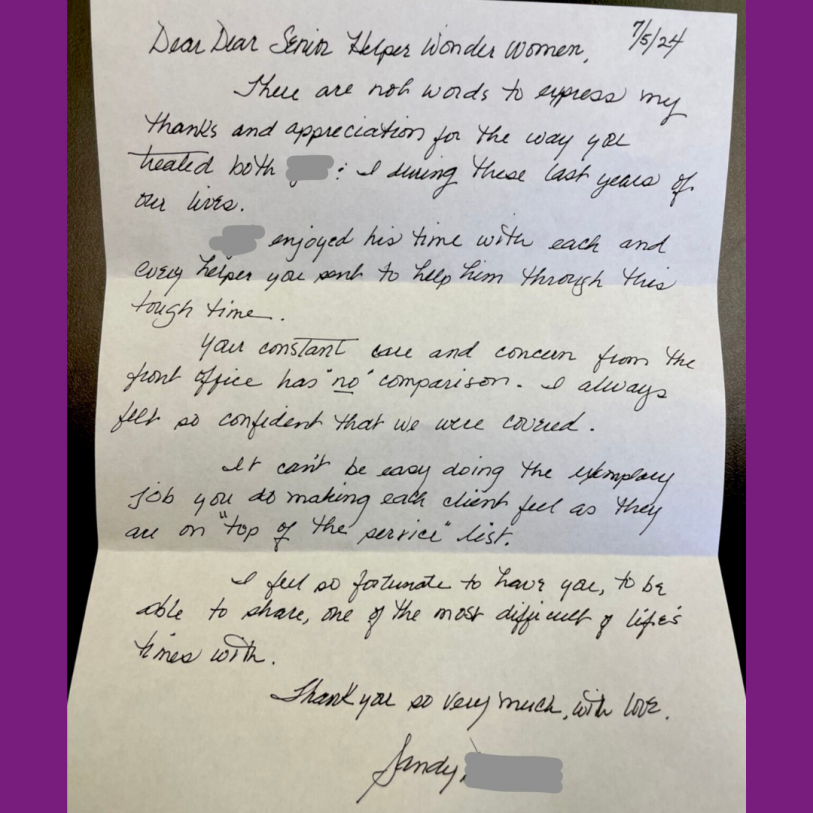 7/5/24
Dear Dear Senior Helper Wonder Women,
There are not words to express my
thanks and appreciation for the way you
treated both : I during these last years of
our lives.
enjoyed his time with each and
every helper you sent to help him through this
tough time.
Your constant care and concern from the
front office has "no" comparison. I always
felt so confident that we were covered.
It can't be easy doing the exemplary
job you do making each client feel as they
are on "top of the service" list.
I feel so fortunate to have you, to be
able to share, one of the most difficult of life's
times with.
Thank you so very much, with love.
Sandy,